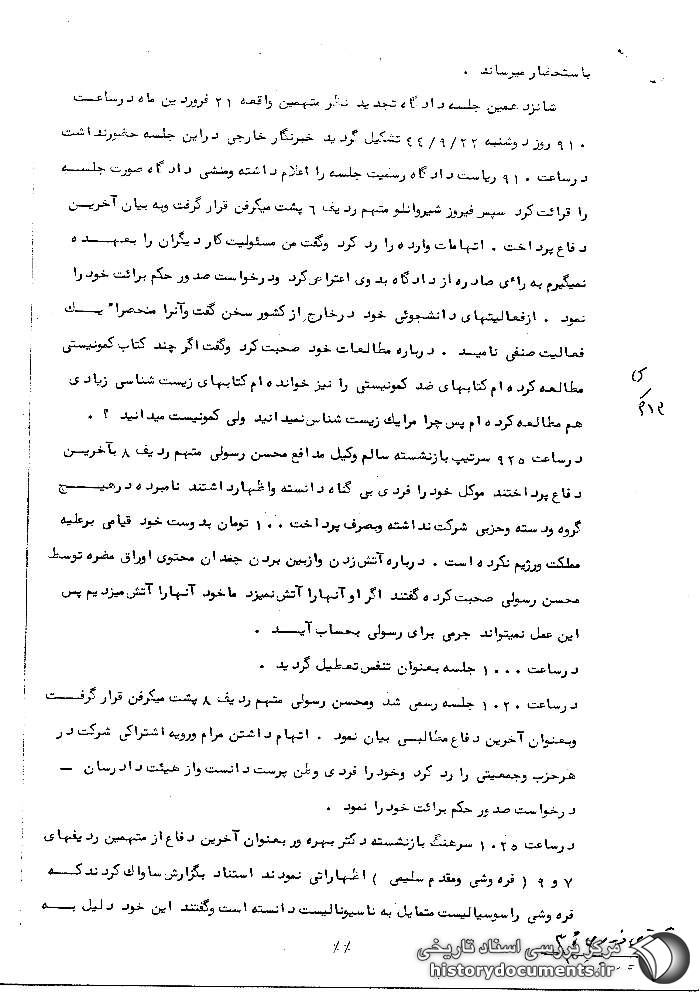 باستحضار میرساند .
شانزدهمین جلسه دادگاه تجدید نظر متهمین واقعه ۲۱ فروردین ماه درساعت
۹۱۰ روز دوشنبه ۴۴/۹/۲۲ تشکیل گردید خبرنگار خارجی دراین جلسه حضورنداشت
درساعت ۹۱۰ ریاست دادگاه رسمیت جلسه را اعلام داشته ومنشی دادگاه صورت جلسه
را قرائت کرد سپس فیروز شیروانلو متهم ردیف ۶ پشت میکرفن قرار گرفت وبه بیان آخرین
دفاع پرداخت . اتهامات وارده را رد کرد وگفت من مسئولیت کار دیگران را بعهده
نمیگیرم به رائی صادره از دادگاه بدوی اعتراض کرد ودرخواست صدور حکم برائت خود را
نمود . ازفعالیتهای دانشجوئی خود درخارج از کشور سخن گفت وآنرا منحصرا" یک
فعالیت صنفی نامید . درباره مطالعات خود صحبت کرد وگفت اگر چند کتاب کمونیستی
مطالعه کرده ام کتابهای ضد کمونیستی را نیز خوانده ام کتابهای زیست شناسی زیادی
هم مطالعه کرده ام پس چرا مرا یک زیست شناس نمیدانید ولی کمونیست میدانید ؟ .
درساعت ۹۲۵ سرتیپ بازنشسته سالم وکیل مدافع محسن رسولی متهم ردیف ۸ بآخرین
دفاع پرداختند موکل خود را فردی بی گناه دانسته واظهارداشتند نامبرده درهیچ
گروه ودسته وحزبی شرکت نداشته وبصرف پرداخت ۱۰۰ تومان بدوست خود قیامی برعلیه
مملکت ورژیم نکرده است . درباره آتش زدن وازبین بردن چمدان محتوی اوراق مضره توسط
محسن رسولی صحبت کرده گفتند اگر او آنهارا آتش نمیزد ماخود آنهارا آتش میزدیم پس
این عمل نمیتواند جرمی برای رسولی بحساب آید .
درساعت ۱۰۰۰ جلسه بعنوان تنفس تعطیل گردید .
درساعت ۱۰۲۰ جلسه رسمی شد ومحسن رسولی متهم ردیف ۸ پشت میکرفن قرار گرفت
وبعنوان آخرین دفاع مطالبی بیان نمود . اتهام داشتن مرام ورویه اشتراکی شرکت در
هرحزب وجمعیتی را رد کرد وخود را فردی وطن پرست دانست واز هیئت دادرسان –
درخواست صدور حکم برائت خود را نمود .
درساعت ۱۰۲۵ سرهنگ بازنشسته دکتر بهره ور بعنوان آخرین دفاع از متهمین ردیفهای
۷ و ۹ ( فره وشی ومقدم سلیمی ) اظهاراتی نمودند استناد بگزارش ساواک کردند که
فره وشی راسوسیالیست متمایل به ناسیونالیست دانسته است وگفتند این خود دلیل به
مرکز بررسی اسناد تاریخی
historydocuments.ir